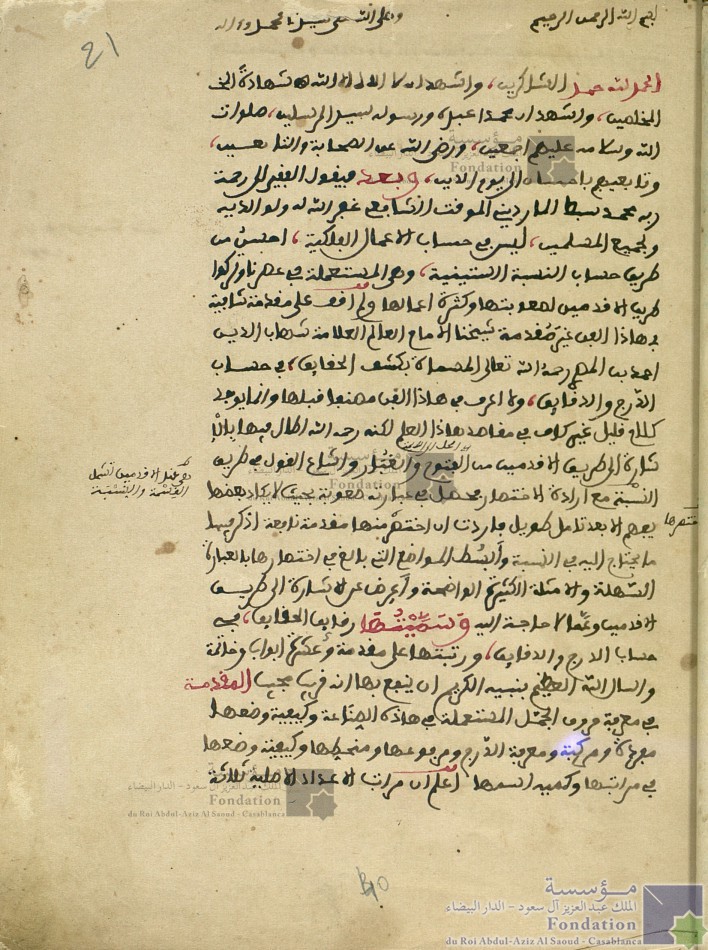 بسم الله الرحمن الرحيم وصلى الله على سيدنا محمد وءاله
21
الحمد لله حمد الشاكرين، واشهد ان لا اله الا الله شهادة
المخلصين، واشهد ان محمدا عبده ورسوله سيد المرسلين صلوات
الله وسلامه عليهم اجمعين، ورضي الله عن الصحابة والتابعين،
وتابعيهم باحسان الى يوم الدين، وبعد فيقول الفقير الى رحمة
ربه محمد سبط الماردينى الموقت الشافعي غفر الله له ولوالديه
ولجميع المسلمين، ليس في حساب الاعمال الفلكية، احسن من
طريق حساب النسبة الستينية، وهي المستعملة في عصرنا وتركوا
طريق الاقدمين لصعوبتها وكثرة اعمالها ولم اقف على مقدمة شافية
في هاذا الفن غير مقدمة شيخنا الامام العالم العلامة شهاب الدين
احمد بن المجدي رحمه الله تعالى المسماة بكشف الحقايق، في حساب
الدرج والدقايق، ولا اعرف في هاذا الفن مصنفا قبلها وانما يوجد
كلام قليل غير كاف في مقاصد هاذا العلم لكنه رحمه الله اطال فيها بالا
شارة الى طريق الاقدمين من الفتوح والفضل واشباع القول في طريق
النسبة مع ارادة الاختصار فحصل في عبارته صعوبة بحيث لا يكاد بعضها
يفهم الا بعد تامل طويل فاردت ان اختصر منها مقدمة نافعة اذكر فيها
ما يحتاج اليه في النسبة وأبسط المواضع التي بالغ في اختصارها بالعبارة
السهلة والامثلة الكثيرة الواضحة وأعرض عن الاشارة الى طريق
الاقدمين وعما لا حاجة اليه وسميتها رقايق الحقايق، في
حساب الدرج والدقايق، ورتبتها على مقدمة وعشرة ابواب وخاتمة
واسال الله العظيم بنبيه الكريم ان ينفع بها انه قريب مجيب المقدمة
في معرفة حروف الجمل المستعملة في هاذه الصناعة وكيفية وضعها
مفردة ومركبة ومعرفة الدرج ومرفوعها ومنحطها وكيفية وضعها
في مراتبها وكمية اسمها اعلم ان مراتب الاعداد الاصلية ثلاثة
مؤسسة
الملك عبد العزيز آل سعود - الدار البيضاء
Fondation
du Roi Abdul-Aziz Al Saoud - Casablanca